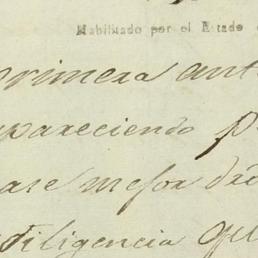 Habilitado por el Estado
primera ant
apareciendo p
ase mejor dro
diligencia que